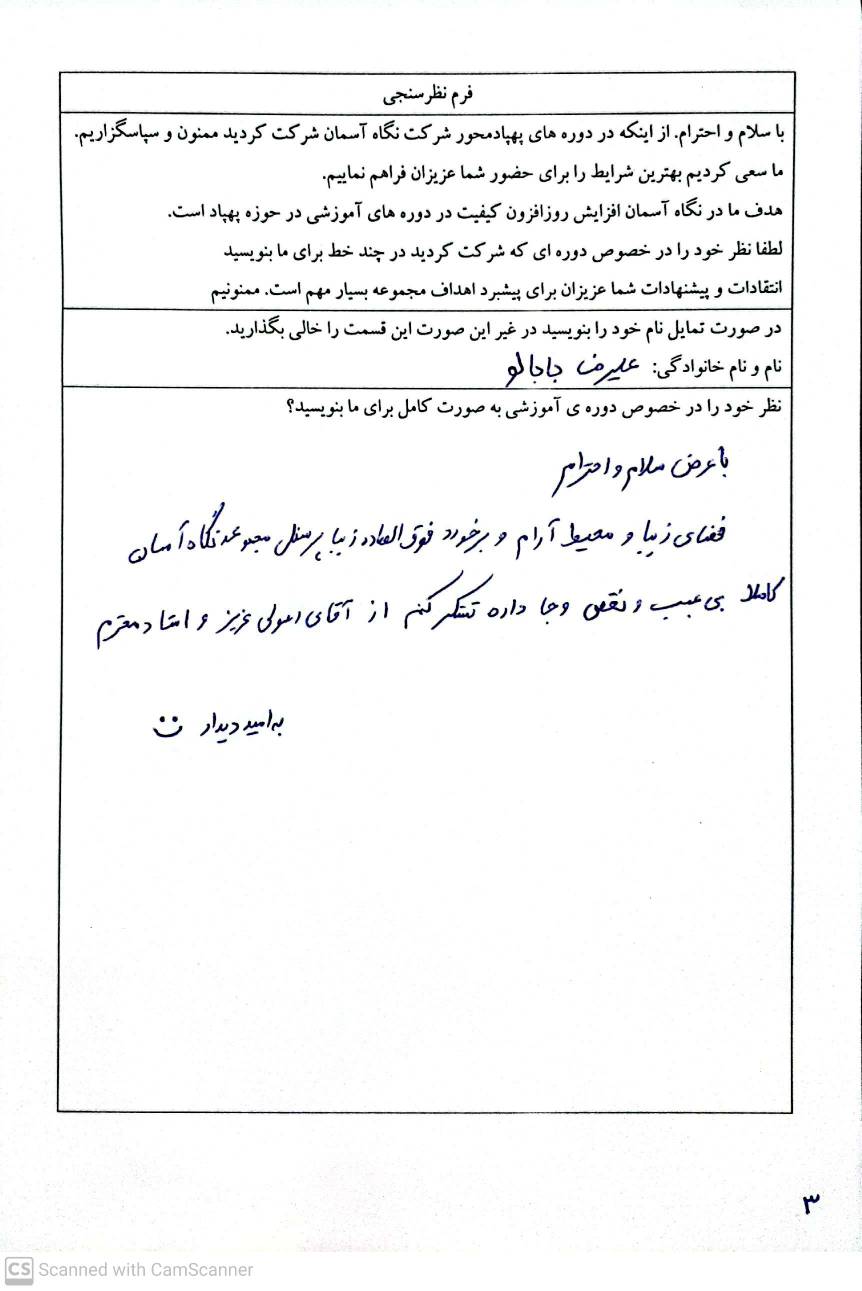 فرم نظرسنجی
با سلام و احترام. از اینکه در دوره های پهپادمحور شرکت نگاه آسمان شرکت کردید ممنون و سپاسگزاریم.
ما سعی کردیم بهترین شرایط را برای حضور شما عزیزان فراهم نماییم.
هدف ما در نگاه آسمان افزایش روزافزون کیفیت در دوره های آموزشی در حوزه پهپاد است.
لطفا نظر خود را در خصوص دوره ای که شرکت کردید در چند خط برای ما بنویسید
انتقادات و پیشنهادات شما عزیزان برای پیشبرد اهداف مجموعه بسیار مهم است. ممنونیم
در صورت تمایل نام خود را بنویسید در غیر این صورت این قسمت را خالی بگذارید.
نام و نام خانوادگی: علیرضا
نظر خود را در خصوص دوره ی آموزشی به صورت کامل برای ما بنویسید؟
با عرض سلام و احترام
فضای زیبا و محیط آرام و برخورد فوق العاده زیبا پرسنل مجموعه نگاه آسمان
کاملا بی عیب و نقص و جا داره تشکر کنم از آقای اصولی عزیز و استاد محترم
به امید دیدار
۳
CS Scanned with CamScanner